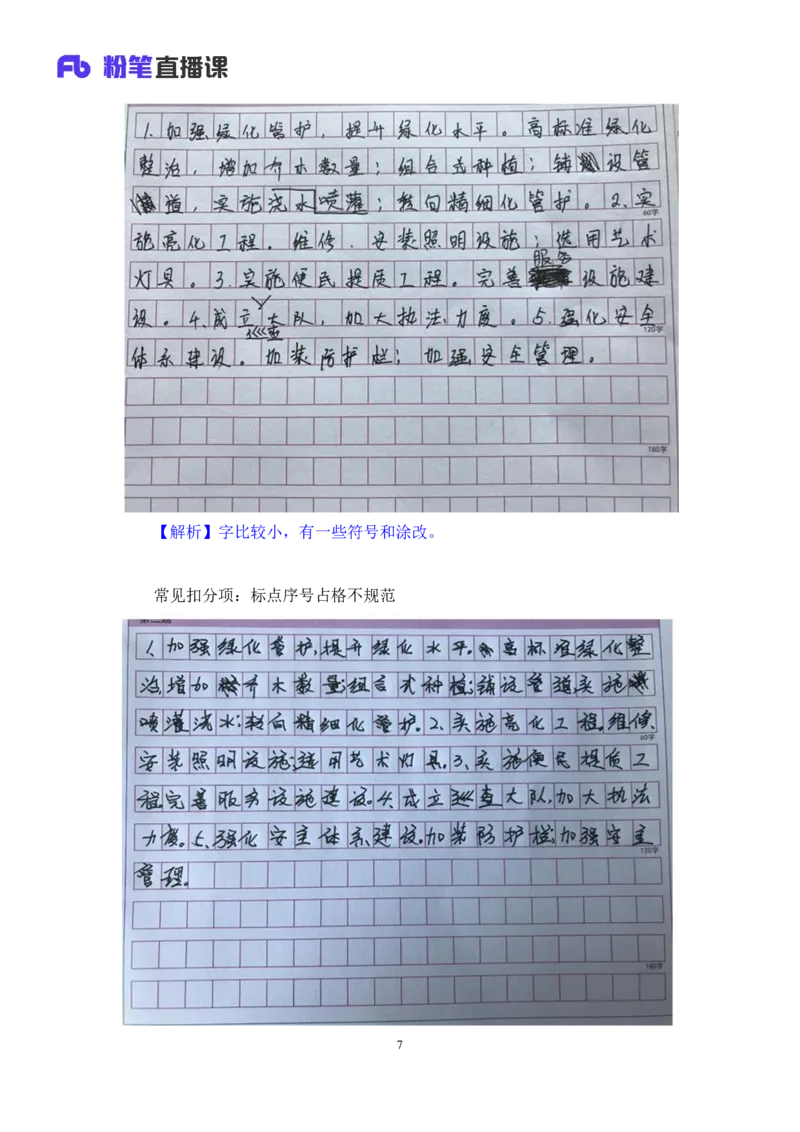 粉笔直播课
1.加强绿化管护，提升绿化水平。高标准绿化
整治，增加乔木数量；组合式种植；铺设管
道，实施浇水喷灌；转向精细化管护。2.实
60字
施亮化工程。维修、安装照明设施；选用艺术
服务
灯具。3.实施便民提质工程。完善设施建
设。4.成立大队，加大执法力度。5.强化安全
巡查
120字
体系建设。加装防护栏；加强安全管理。
180字
【解析】字比较小，有一些符号和涂改。
常见扣分项：标点序号占格不规范
第二题
1、加强绿化管护，提升绿化水平。高标准绿化整
治，增加乔木数量；组合式种植；铺设管道，实施
喷灌浇水；转向精细化管护。2、实施亮化工程。维修、
60字
安装照明设施；选用艺术灯具。3、实施便民提质工
程。完善服务设施建设。4、成立巡查大队，加大执法
力度。5、强化安全体系建设。加装防护栏；加强安全
120字
管理。
180字
7